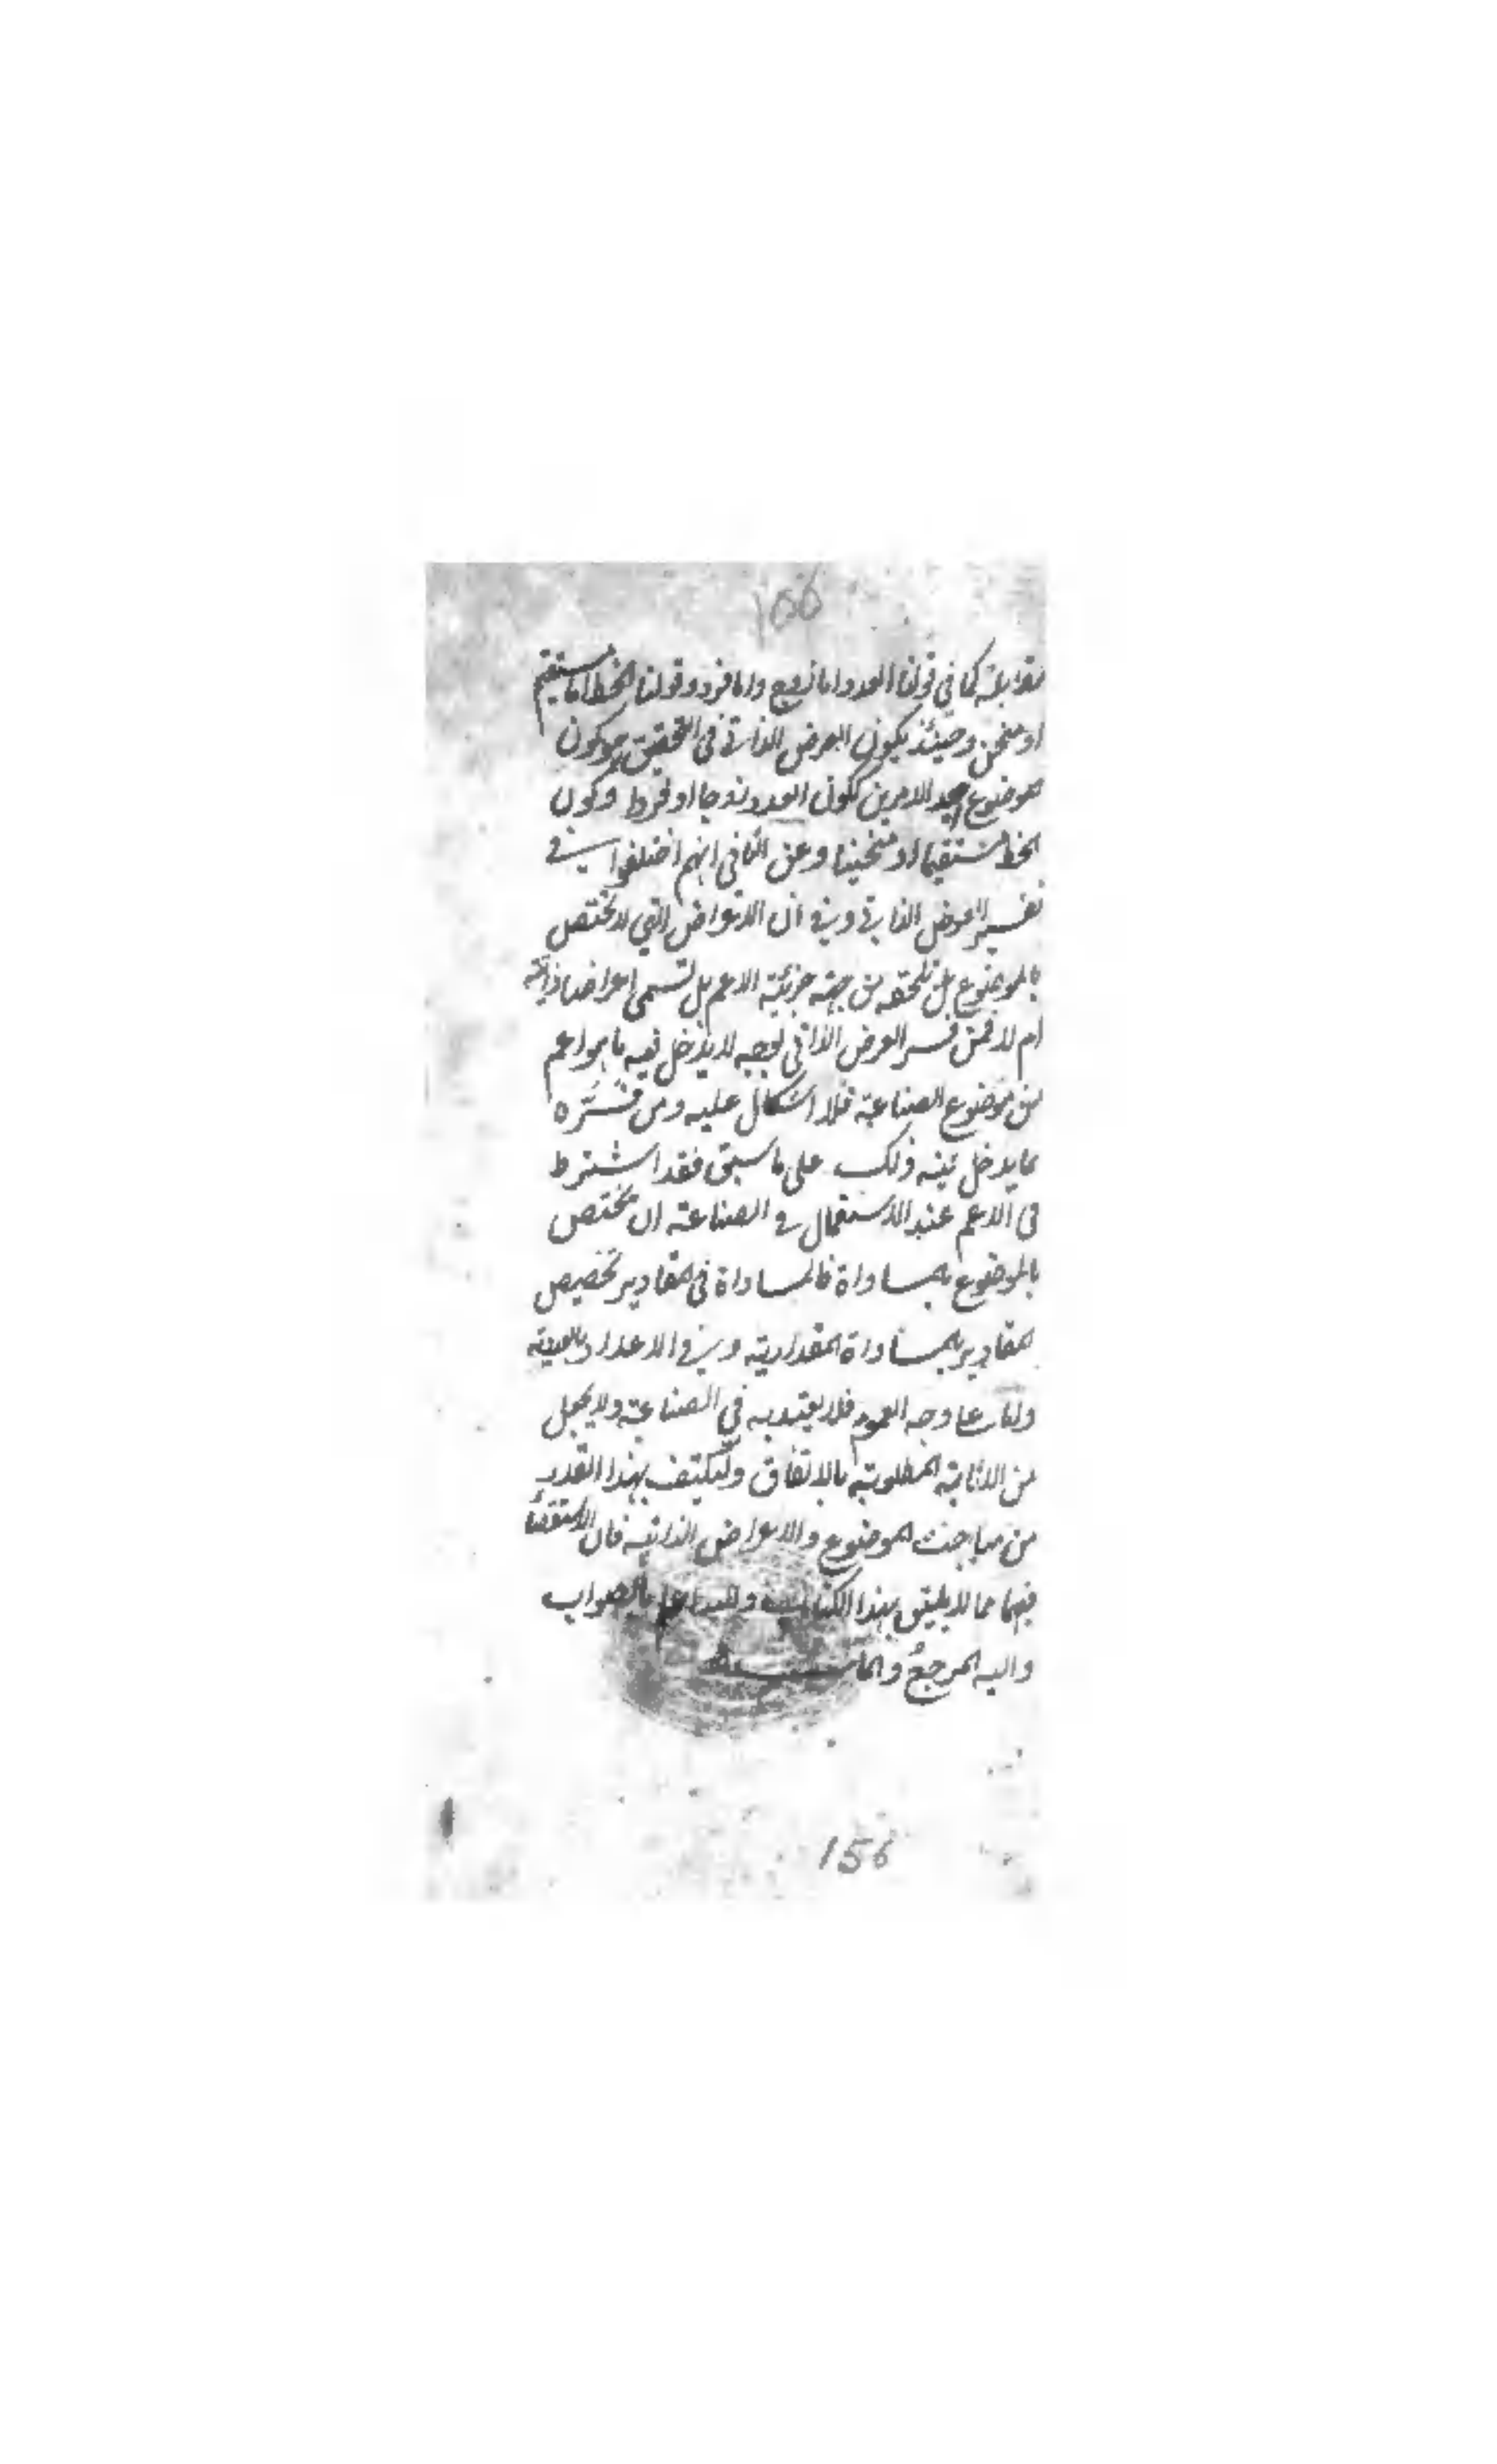 156
مقابلة كما في قولنا العدد اما زوج واما فرد وقولنا الخط اما مستقيم
او منحن وحينئذ يكون العرض الذاتي في التحقيق هو كون
موضوع احد الامرين ككون العدد زوجا او فردا وكون
الخط مستقيما او منحنيا وعن الثاني انهم اختلفوا في
تفسير العرض الذاتي وفي ان الاعراض التي لا تختص
بالموضوع بل تلحقه من جهة جزئية الاعم بل تسمى اعراضا ذاتية
ام لا فمن فسر العرض الذاتي بوجه لا يدخل فيه ما هو اعم
من موضوع الصناعة فلا اشكال عليه ومن فسره
بما يدخل فيه ذلك على ما سبق فقد اشترط
في الاعم عند الاستعمال في الصناعة ان يختص
بالموضوع كالمساواة فالمساواة في المقادير تخصيص
المقادير بالمساواة المقدارية وفي الاعداد بالعددية
واما على وجه العموم فلا يعتد به في الصناعة ولا يجعل
من المطلوبة بالاتفاق وليكتف بهذا القدر
من مباحث الموضوع والاعراض الذاتية فان الاستقصاء
فيها مما لا يليق بهذا الكتاب والله اعلم بالصواب
واليه المرجع والمآب
156